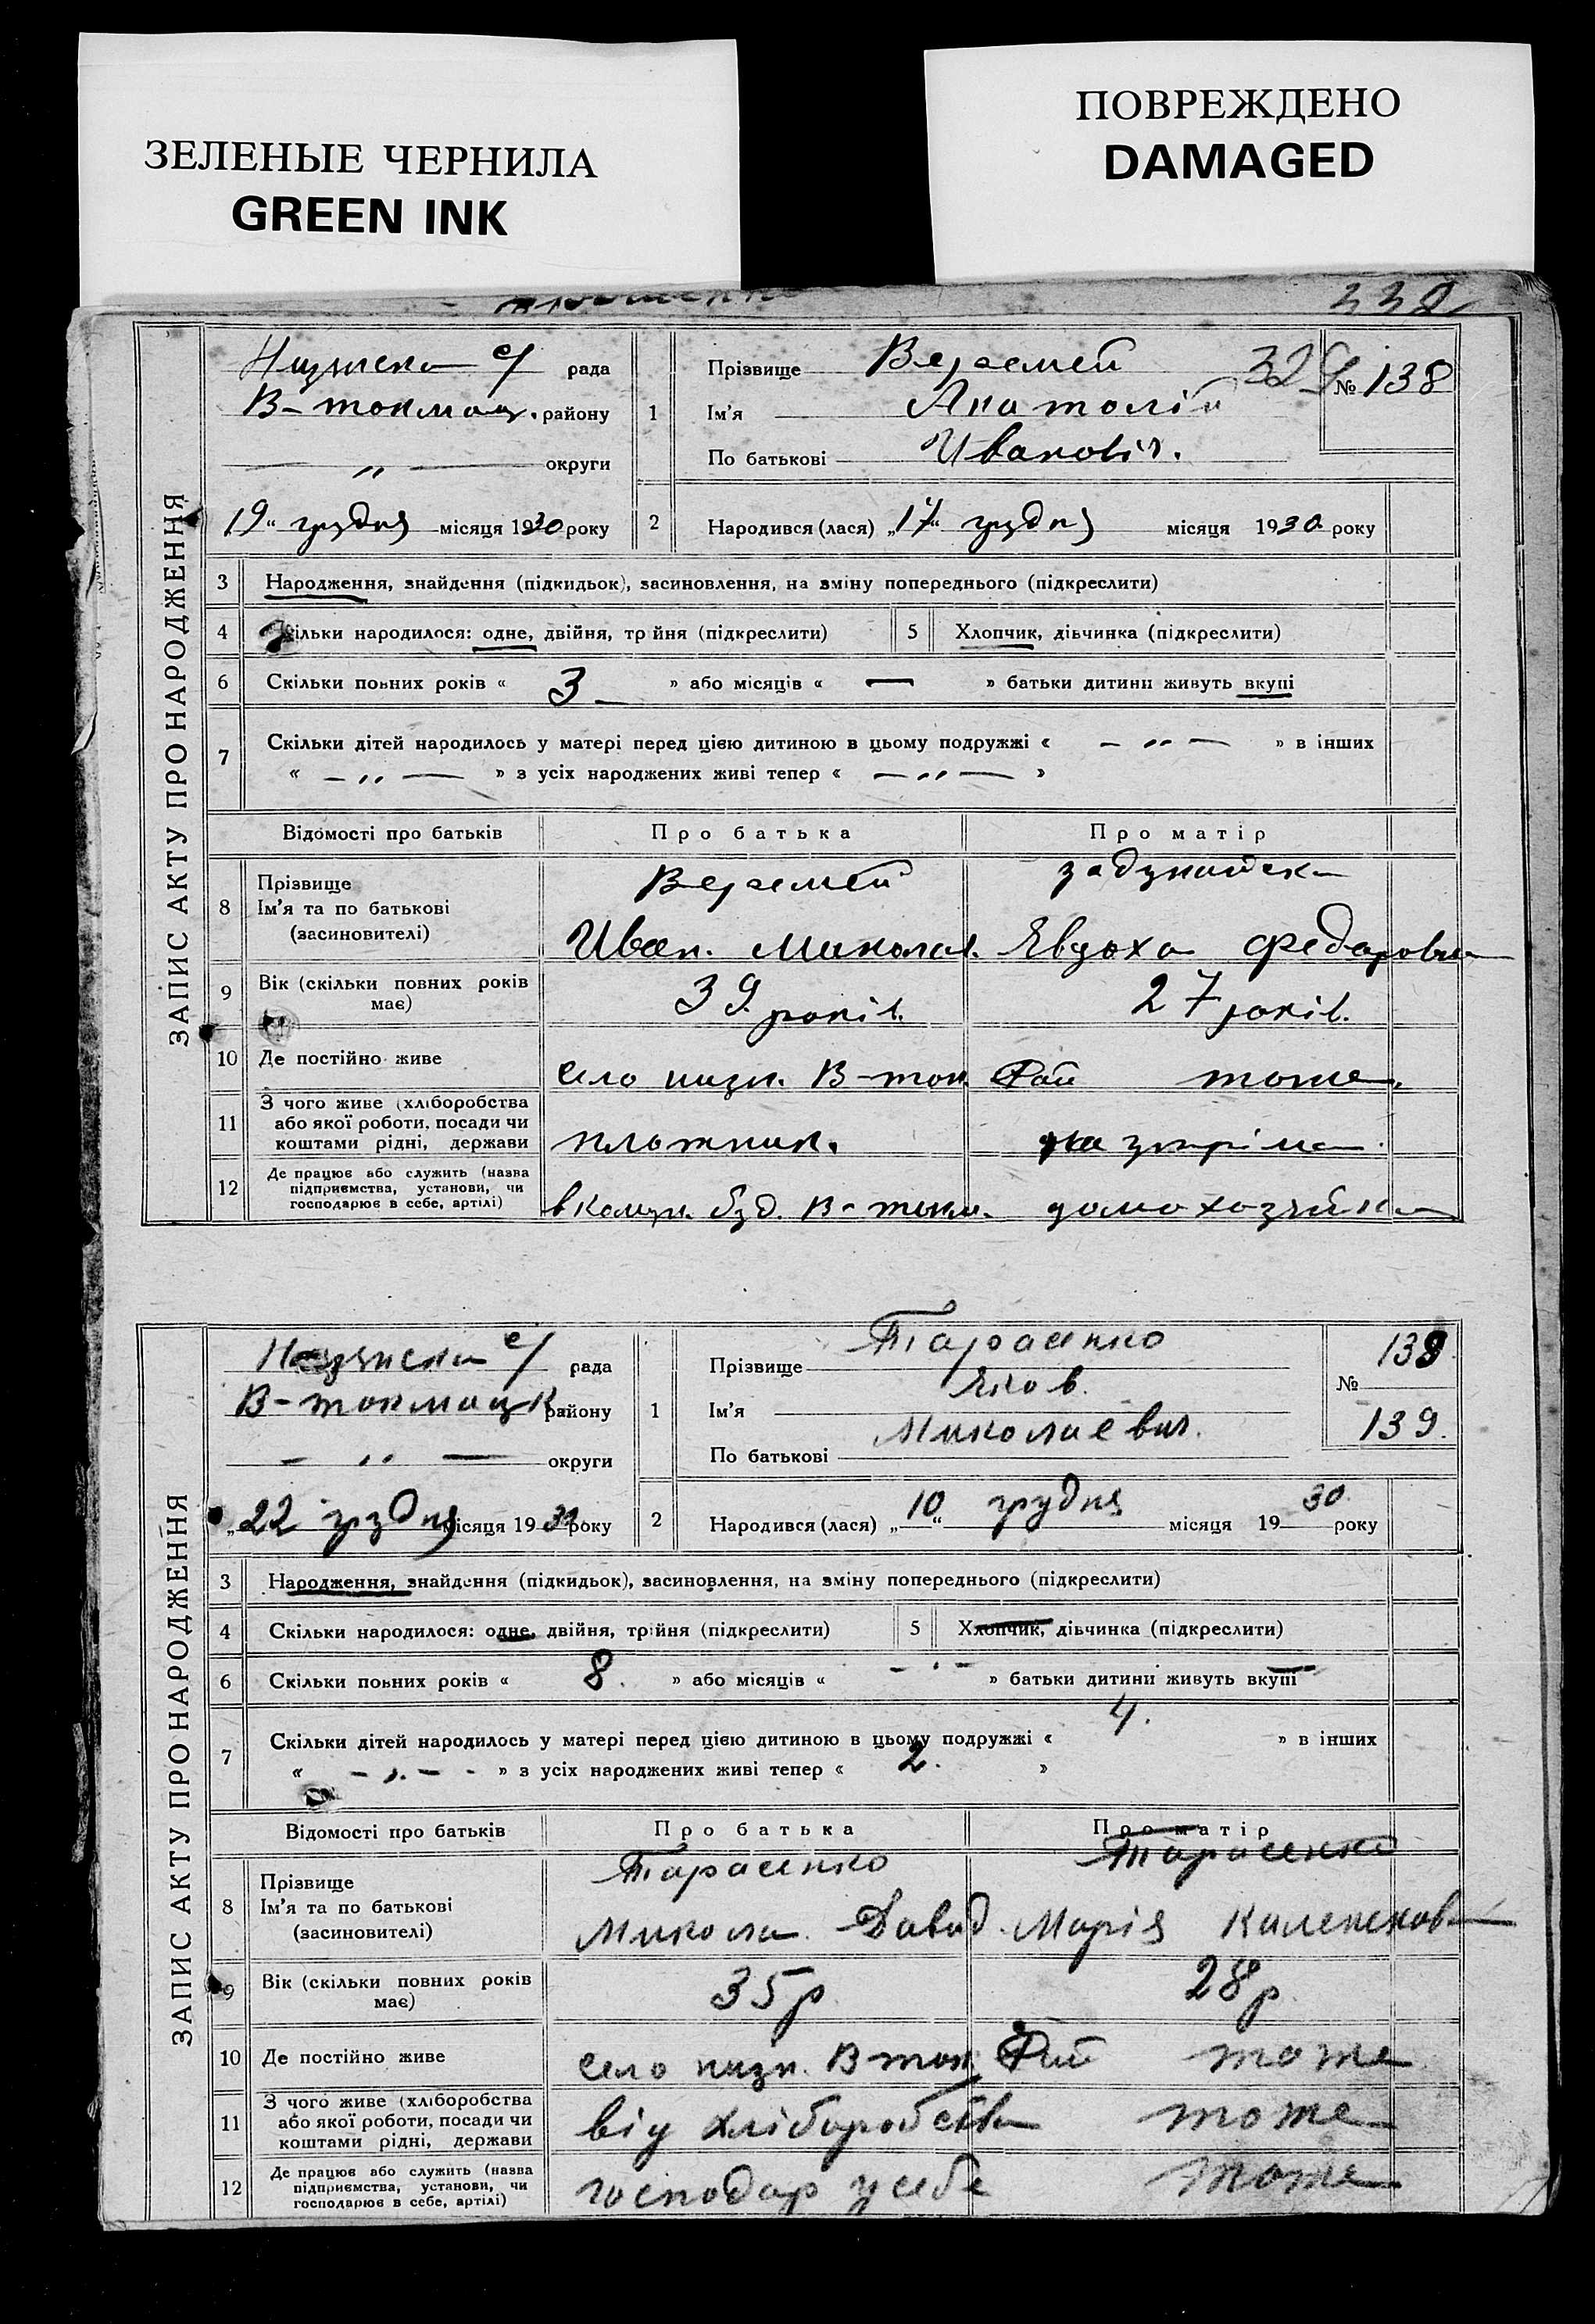 ЗЕЛЕНЫЕ ЧЕРНИЛА
GREEN INK
ПОВРЕЖДЕНО
DAMAGED
ЗАПИС АКТУ ПРО НАРОДЖЕННЯ
рада
В-токмац. району
— „ — округи
19 “ грудня місяця 1930 року
1
Прізвище Веремей
Ім'я Анатолій
По батькові Иванович.
№ 138
2
Народився (лася) „17“ грудня місяця 1930 року
3 Народження, знайдення (підкидьок), засиновлення, на зміну попереднього (підкреслити)
4 Скільки народилося: одне, двійня, трійня (підкреслити) 5 Хлопчик, дівчинка (підкреслити)
6 Скільки повних років « 3 » або місяців « — » батьки дитини живуть вкупі
7 Скільки дітей народилось у матері перед цією дитиною в цьому подружжі « — „ — » в інших
« — „ — » з усіх народжених живі тепер « — „ — »
Відомості про батьків Про батька Про матір
8 Прізвище
Ім'я та по батькові
(засиновителі)
Веремей
Иван. Микола. Явдоха Федоровна
9 Вік (скільки повних років має) 39 років. 27 років.
10 Де постійно живе село низя. В-ток. Рай тоже.
11 З чого живе (хліборобства
або якої роботи, посади чи
коштами рідні, держави
плотник.
12 Де працює або служить (назва
підприємства, установи, чи
господарює в себе, артілі)
буд. В-токм. домохозяйка
ЗАПИС АКТУ ПРО НАРОДЖЕННЯ
рада
В-токмацк району
— „ — округи
„22 грудня місяця 1930 року
1
Прізвище Тарасенко
Ім'я Яков.
По батькові Миколаевич.
139
№
139.
2
Народився (лася) „10“ грудня місяця 1930 року
3 Народження, знайдення (підкидьок), засиновлення, на зміну попереднього (підкреслити)
4 Скільки народилося: одне, двійня, трійня (підкреслити) 5 Хлопчик, дівчинка (підкреслити)
6 Скільки повних років « 8. » або місяців « — » батьки дитини живуть вкупі
7 Скільки дітей народилось у матері перед цією дитиною в цьому подружжі « 4. » в інших
« — „ — » з усіх народжених живі тепер « 2. »
Відомості про батьків Про батька Про матір
8 Прізвище
Ім'я та по батькові
(засиновителі)
Тарасенко Тарасенко
Микола Давид. Марія
9 Вік (скільки повних років має) 35 р 28 р
10 Де постійно живе село низя. В ток. Рай тоже
11 З чого живе (хліборобства
або якої роботи, посади чи
коштами рідні, держави
від хліборобства тоже
12 Де працює або служить (назва
підприємства, установи, чи
господарює в себе, артілі)
господар у себе тоже